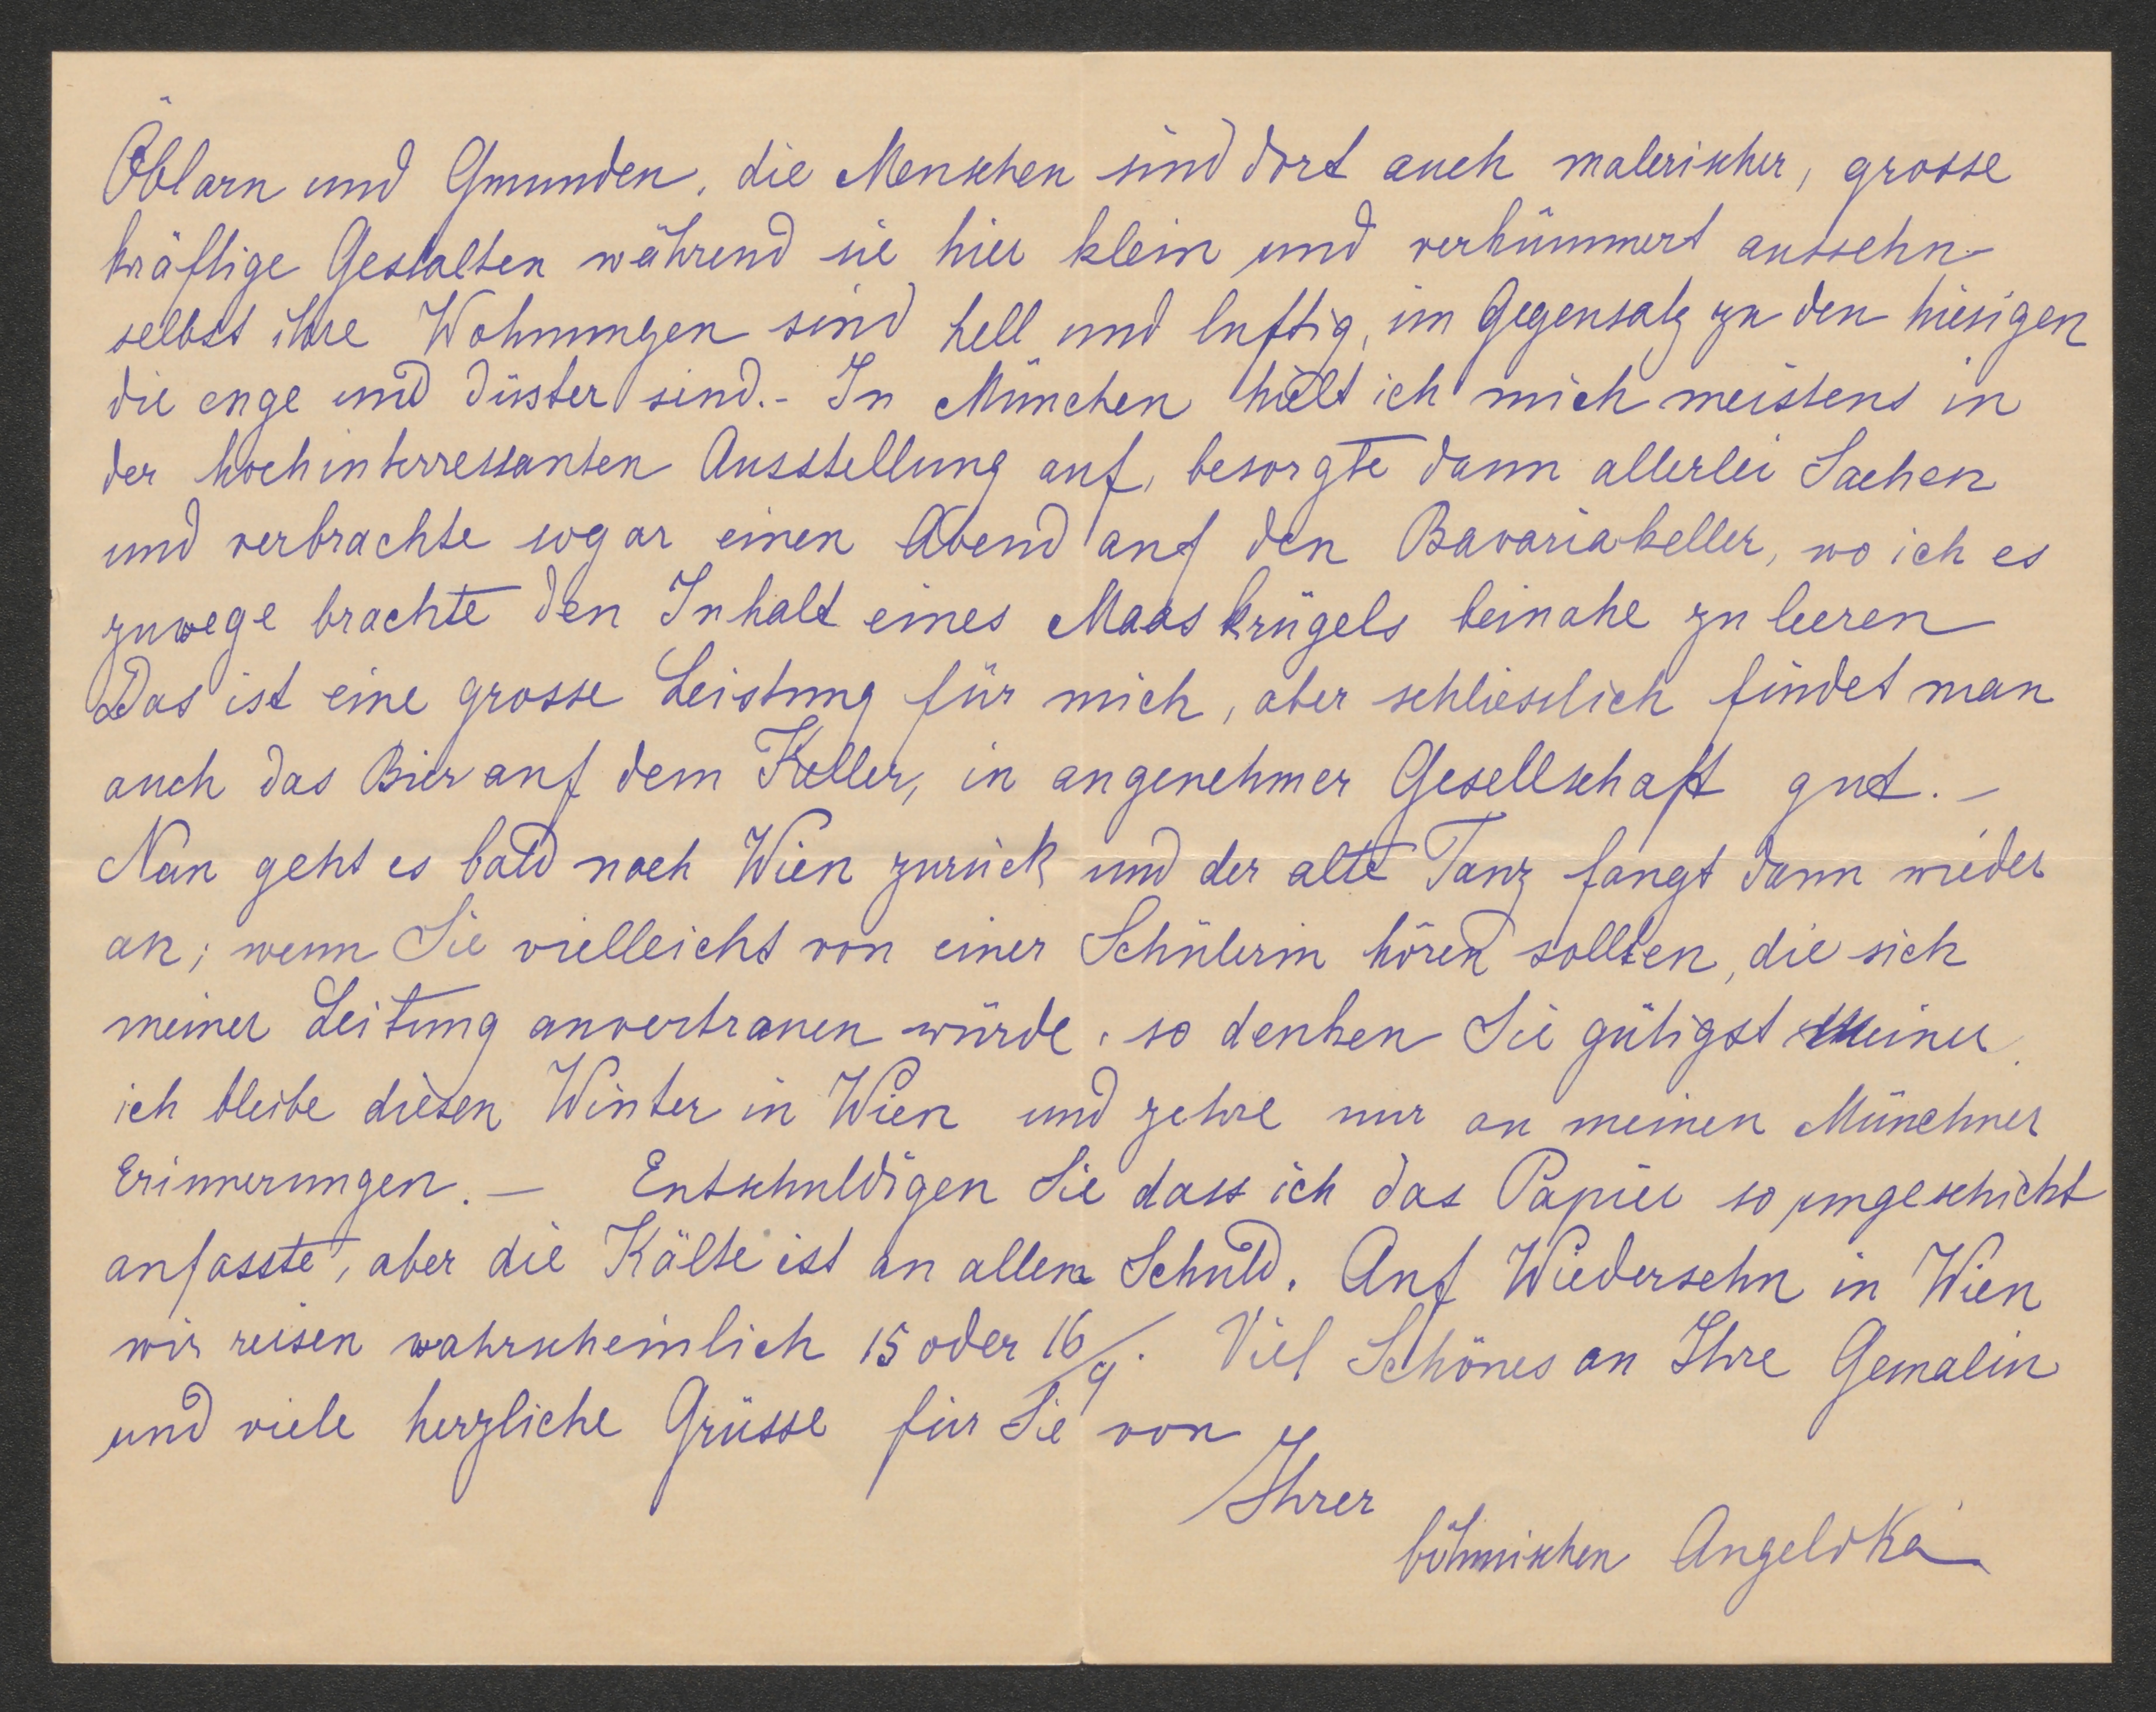 Öblarn und Gmunden, die Menschen sind dort auch malerischer, grosse
kräftige Gestalten während sie hier klein und verkümmert aussehn
selbst ihre Wohnungen sind hell und luftig, im Gegensatz zu den hiesigen
die enge und düster sind.- In München hielt ich mich meistens in
der hochinterressanten Ausstellung auf, besorgte dann allerlei Sachen
und verbrachte sogar einen Abend auf den Bavariakeller, wo ich es
zuwege brachte den Inhalt eines Maaskrügels beinahe zu leeren
Das ist eine grosse Leistung für mich, aber schliesslich findet man
auch das Bier auf dem Keller, in angenehmer Gesellschaft gut. –
Nun geht es bald nach Wien zurück und der alte Tanz fangt dann wieder
an; wenn Sie vielleicht von einer Schülerin hören sollten, die sich
meiner Leitung anvertrauen würde, so denken Sie gütigst meiner.
ich bleibe diesen Winter in Wien und zehre nur an meinen Münchner
Erinnerungen. – Entschuldigen Sie dass ich das Papier so ungeschickt
anfasste, aber die Kälte ist an allem Schuld. Auf Wiedersehn in Wien
wir reisen wahrscheinlich 15 oder 16/9. Viel Schönes an Ihre Gemalin
und viele herzliche Grüsse für Sie von
Ihrer
böhmischen Angelika